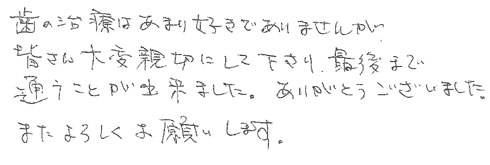 歯の治療はあまり好きでありませんが、
皆さん大変親切にして下さり、最後まで
通うことが出来ました。ありがとうございました。
またよろしくお願いします。